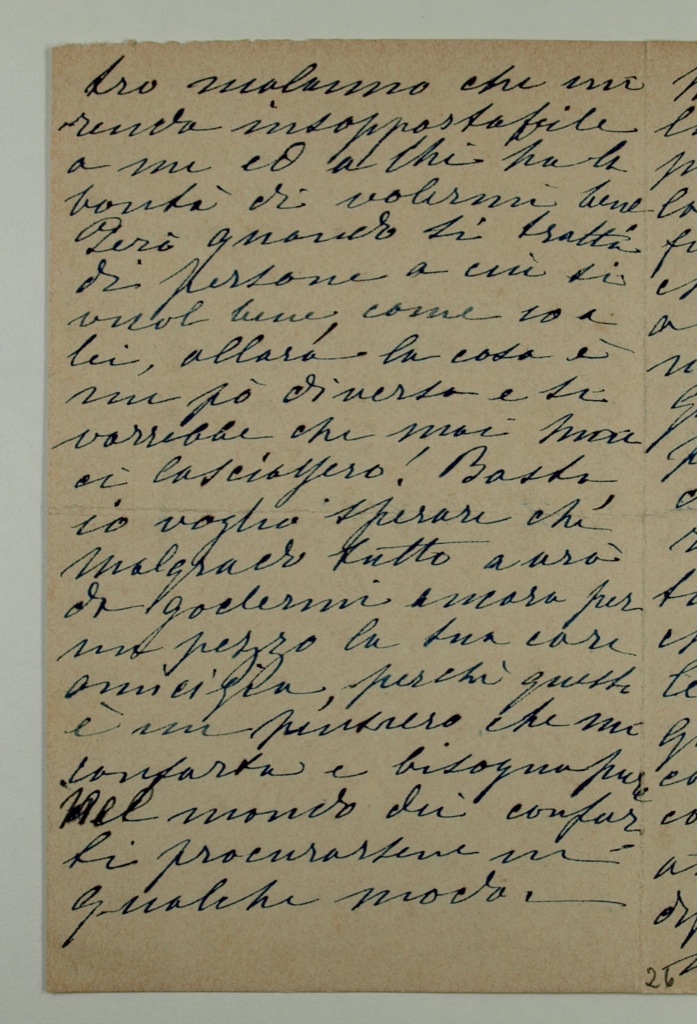 tro malanno che mi
renda insopportabile
a me ed a chi ha la
bontà di volermi bene
Però quando si tratta
di persone a cui si
vuol bene, come io a
lei, allora la cosa è
un pò diversa e si
vorrebbe che mai non
ci lasciassero! Basta
io voglio sperare che
malgrado tutto avrò
da godermi ancora per
un pezzo la sua cara
amicizia, perchè questo
è un pensiero che mi
conforta e bisogna pure
nel mondo dei confor=
ti procurarsene in
qualche modo.
26